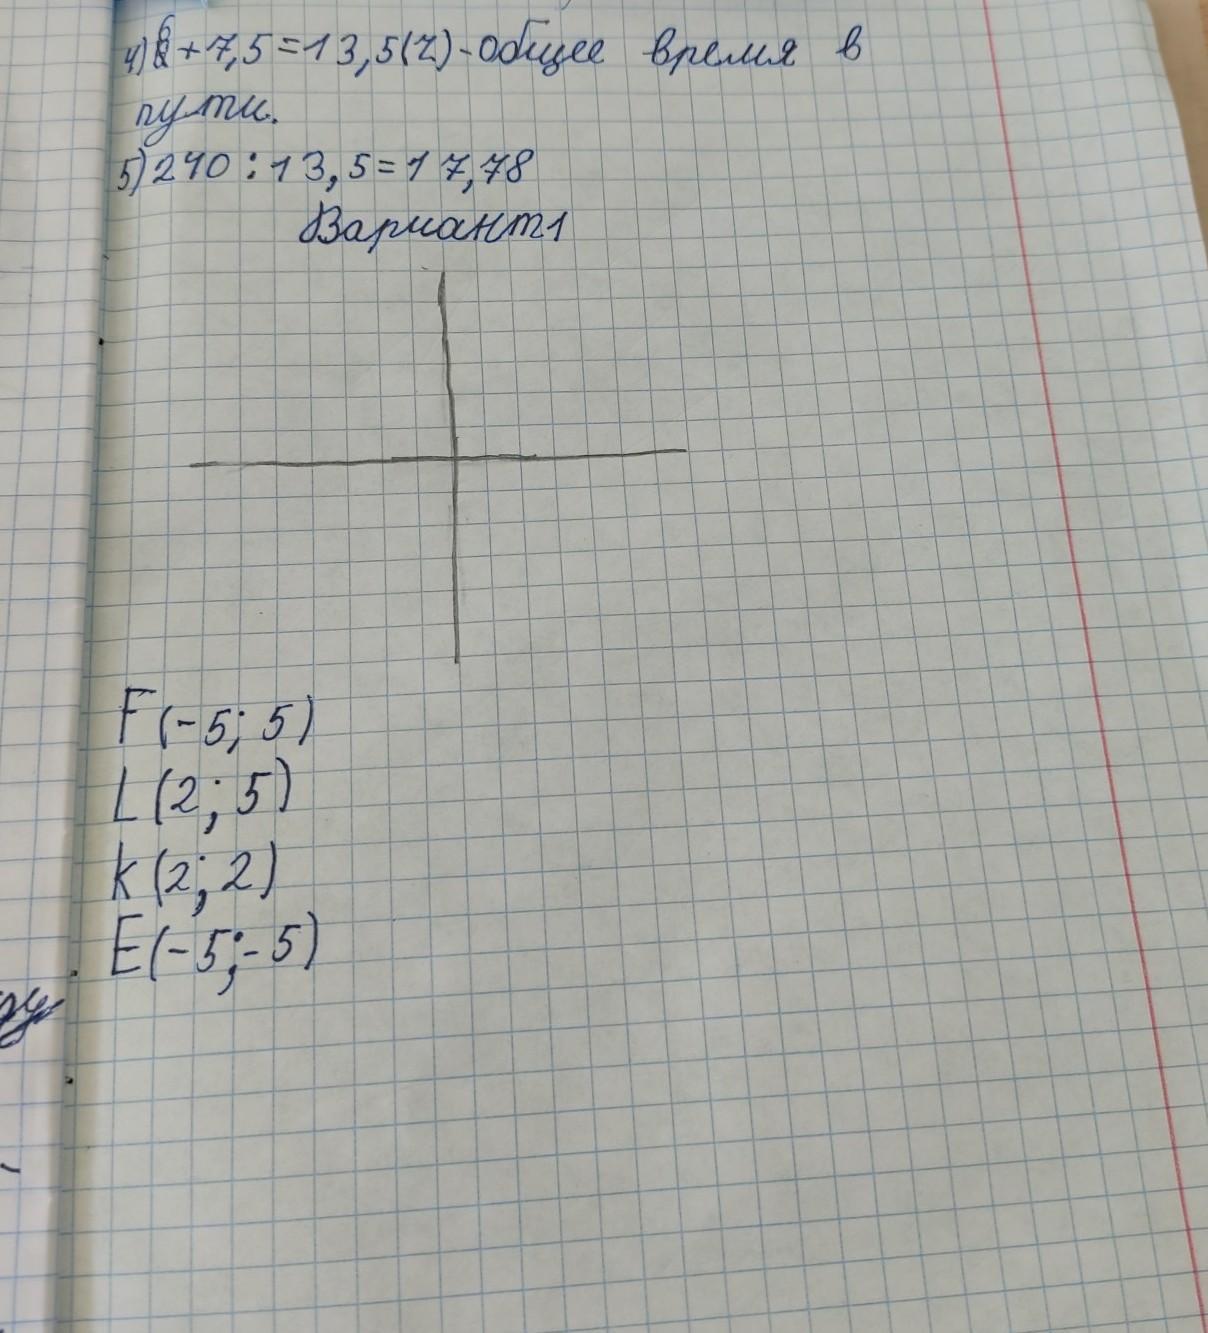 4) 6 + 7,5 = 13,5 (ч) - общее время в
пути.
5) 240 : 13,5 = 17,78
Вариант 1
F (-5; 5)
L (2; 5)
K (2; 2)
E (-5; -5)